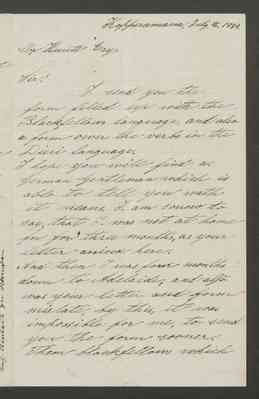 Kopperamana, July 12. 188
Howitt Esq.
Sir!
I send you the
form filled up with the
Blackfellows language, and also
a form over the verbs in the
Dieri language.
I hope you will find a
German gentleman which is
able to tell you worth
it means. I am sorrow to
say, that I was not at home
in for three months, as your
letter arrived here.
And then I was four months
down to Adelaide, and after
was your letter and form
mislaid, by this, it was
impossible for me, to send
you the form sooner.
Them blackfellows which